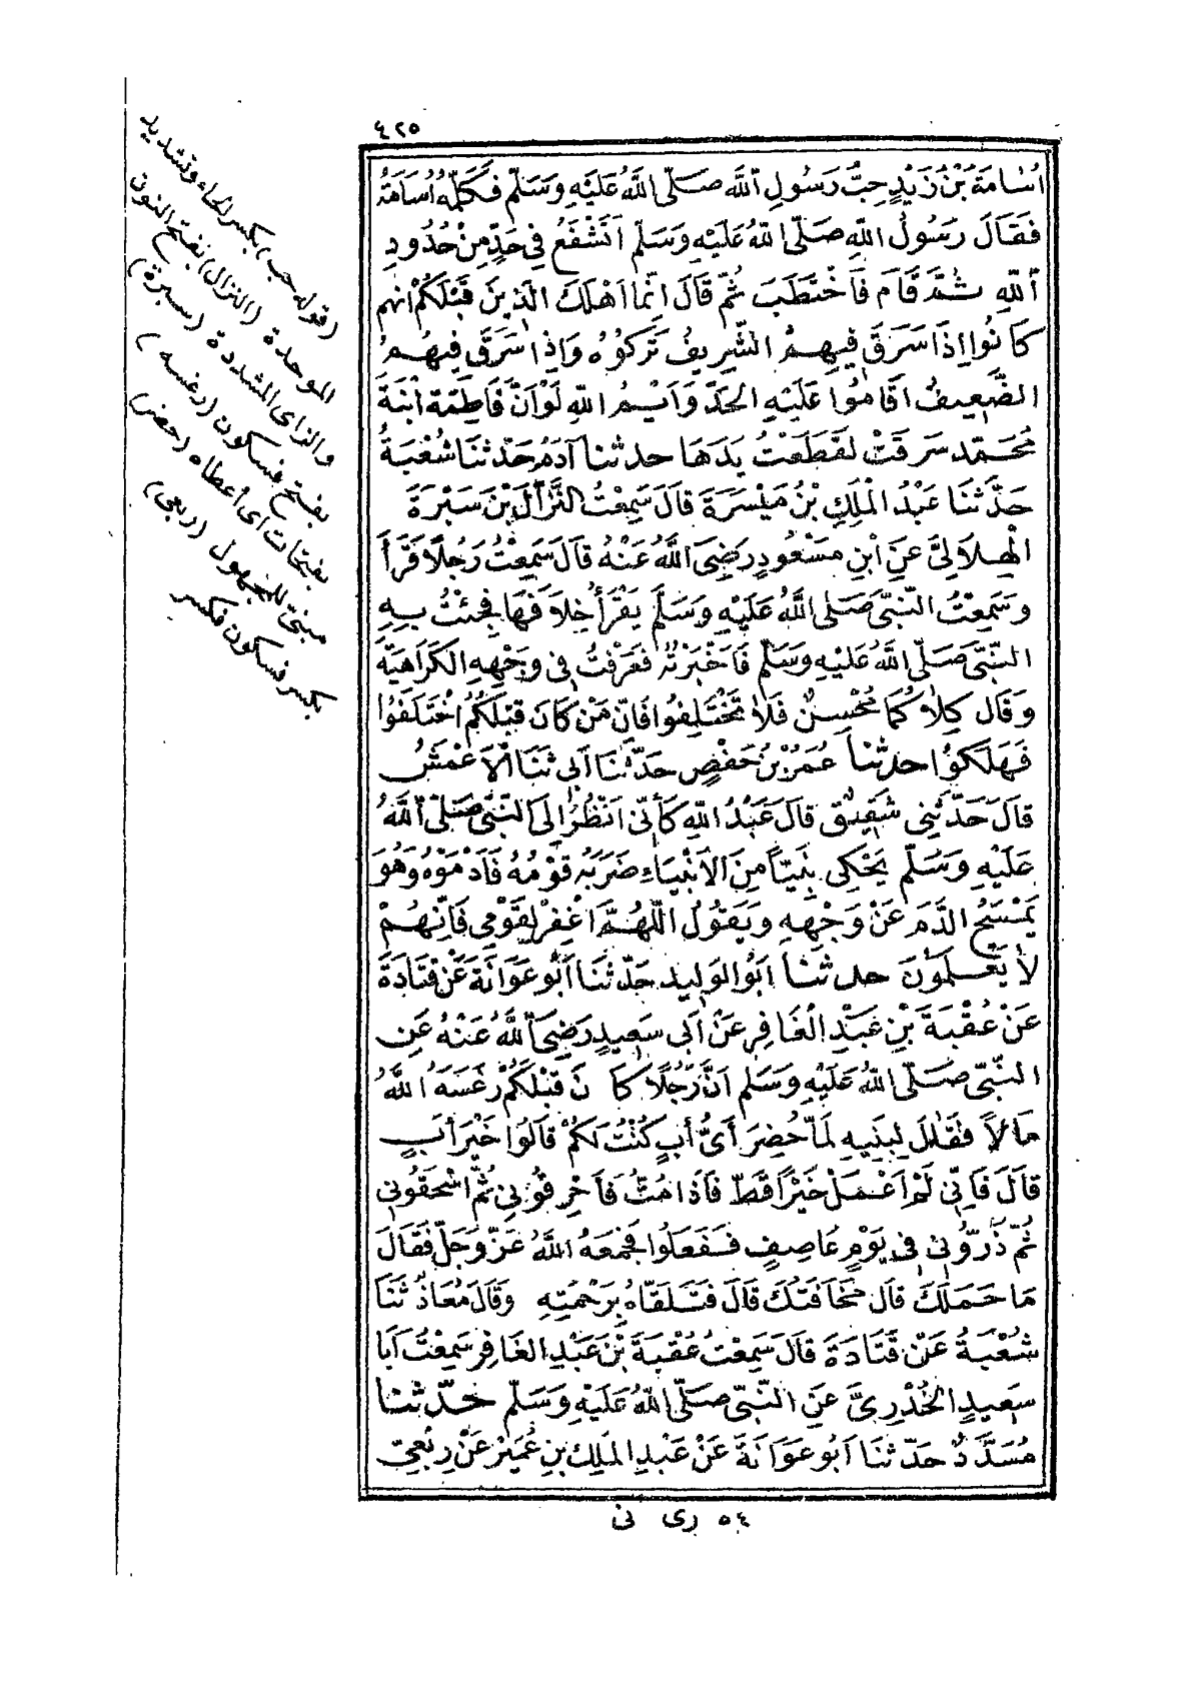 ٤٢٥
اُسَامَةُ بْنُ زَيْدٍ حِبُّ رَسُولِ اَللَّه صَلَّى اللَّهُ عَلَيْهِ وَسَلَّمَ فَكَلَّمَهُ اُسَامَةُ
فَقَالَ رَسُولُ اللّهِ صَلَّى اللّهُ عَلَيْهِ وَسَلَّمَ اَتَشْفَعُ فِي حَدٍّ مِنْ حُدُودِ
اَللّهِ ثُمَّ قَامَ فَاخْتَطَبَ ثُمَّ قَالَ اِنَّمَا اَهْلَكَ الَّذِينَ قَبْلَكُمْ اَنَّهُم
كَانُوا اِذَا سَرَقَ فِيهِمُ الشَّرِيفُ تَرَكُوهُ وَاِذَا سَرَقَ فِيهِمُ
الضَّعِيفُ اَقَامُوا عَلَيْهِ الحَدَّ وَاَيْمُ اللّهِ لَوْ اَنَّ فَاطِمَةَ ابْنَةَ
مُحَمَّد سَرَقَتْ لَقَطَعْتُ يَدَهَا حدثنا آدَمُ حَدّثَنَا شُعْبَةُ
حَدَّثَنَا عَبْدُ الْمَلِكِ بْنُ مَيْسَرَةَ قَالَ سَمِعْتُ النَّزَّالَ بْنَ سَبْرَةَ
الْهِلَالِيَّ عَنِ ابْنِ مَسْعُودٍ رَضِيَ اللَّهُ عَنْهُ قَالَ سَمِعْتُ رَجُلًا قَرَأَ
وَسَمِعْتُ النَّبِيَّ صَلَى اللَّهُ عَلَيْهِ وَسَلَّمَ يَقْرَأُ خِلَافَهَا فَجِئْتُ بِهِ
النَّبِيَّ صَلَّى اللَّهُ عَلَيْهِ وَسَلَّمَ فَاَخْبَرْتُهُ فَعَرَفْتُ فِي وَجْهِهِ الكَرَاهِيَةَ
وَقَالَ كِلَاكُمَا مُحْسِنٌ فَلَا تَخْتَلِفُوا فَاِنَّ مَنْ كَانَ قَبْلَكُمُ اخْتَلَفُوا
فَهَلَكُوا حدثنا عُمَرُ بْنُ حَفْصٍ حَدَّثَنَا اَبِي ثَنَا الْاَعْمَشُ
قَالَ حَدَّثَنِي شَقِيقٌ قَالَ عَبْدُ اللّهِ كَأَنِّي اَنْظُرُ اِلَى النَّبِيِّ صَلَّى اَللَّهُ
عَلَيْهِ وَسَلَّمَ يَحْكِي نَبِيّاً مِنَ الاَنْبِيَاءِ ضَرَبَهُ قَوْمُهُ فَاَدْمَوْهُ وَهُوَ
يَمْسَحُ الدَّمَ عَنْ وَجْهِهِ وَيَقُولُ اَللّهُمَّ اغْفِرْ لِقَوْمِي فَاِنَّهُمْ
لَا يَعْلَمُونَ حدثنا اَبُو الوَلِيدِ حَدّثَنَا اَبُو عَوَانَةَ عَنْ قَتَادَةَ
عَنْ عُقْبَةَ بْنِ عَبْدِ الْغَافِرِ عَنْ اَبِي سَعِيدٍ رَضِيَ اَللَّهُ عَنْهُ عَنِ
النَّبِيِّ صَلَّى اللّهُ عَلَيْهِ وَسَلَّم اَنَّ رَجُلًا كَانَ قَبْلَكُمْ رَغَسَهُ اللَّهُ
مَالاً فَقَالَ لِبَنِيهِ لَمَّا حُضِرَ أَيُّ أَبٍ كُنْتُ لَكُمْ قَالُوا خَيْرَ أَبٍ
قَالَ فَاِنِّي لَمْ اَعْمَلْ خَيْرًا قَطُّ فَاِذَا مُتُّ فَاَحْرِقُونِي ثُمَّ اسْحَقُونِي
ثُمَّ ذَرُّونِي فِي يَوْمٍ عَاصِفٍ فَفَعَلُوا فَجَمَعَهُ اللَّهُ عَزَّ وَجَلَّ فَقَالَ
مَا حَمَلَكَ قَالَ مَخَافَتُكَ قَالَ فَتَلَقَّاهُ بِرَحْمَتِهِ وَقَالَ مُعَاذٌ ثَنَا
شُعْبَةُ عَنْ قَتَادَةَ قَالَ سَمِعْتُ عُقْبَةَ بْنَ عَبْدِ الغَافِرِ سَمِعْتُ اَبَا
سَعِيدٍ الخُدْرِيَّ عَنِ النَّبِيِّ صَلَّى اللّهُ عَلَيْهِ وَسَلَّمَ حَدّثَنَا
مُسَدَّدٌ حَدّثَنَا اَبُو عَوَانَةَ عَنْ عَبْدِ المَلِكِ بْنِ عُمَيْرٍ عَنْ رِبْعِيّ
(قوله حب) بكسر الحاء وتشديد
الموحدة (النزال) بفتح النون
والزاى المشددة (سبرة)
بفتح فسكون (رغسه)
بفتحات اى أعطاه (حضر)
مبنى للمجهول (ربعى)
بكسر فسكون فكسر
٥٤ رى نى